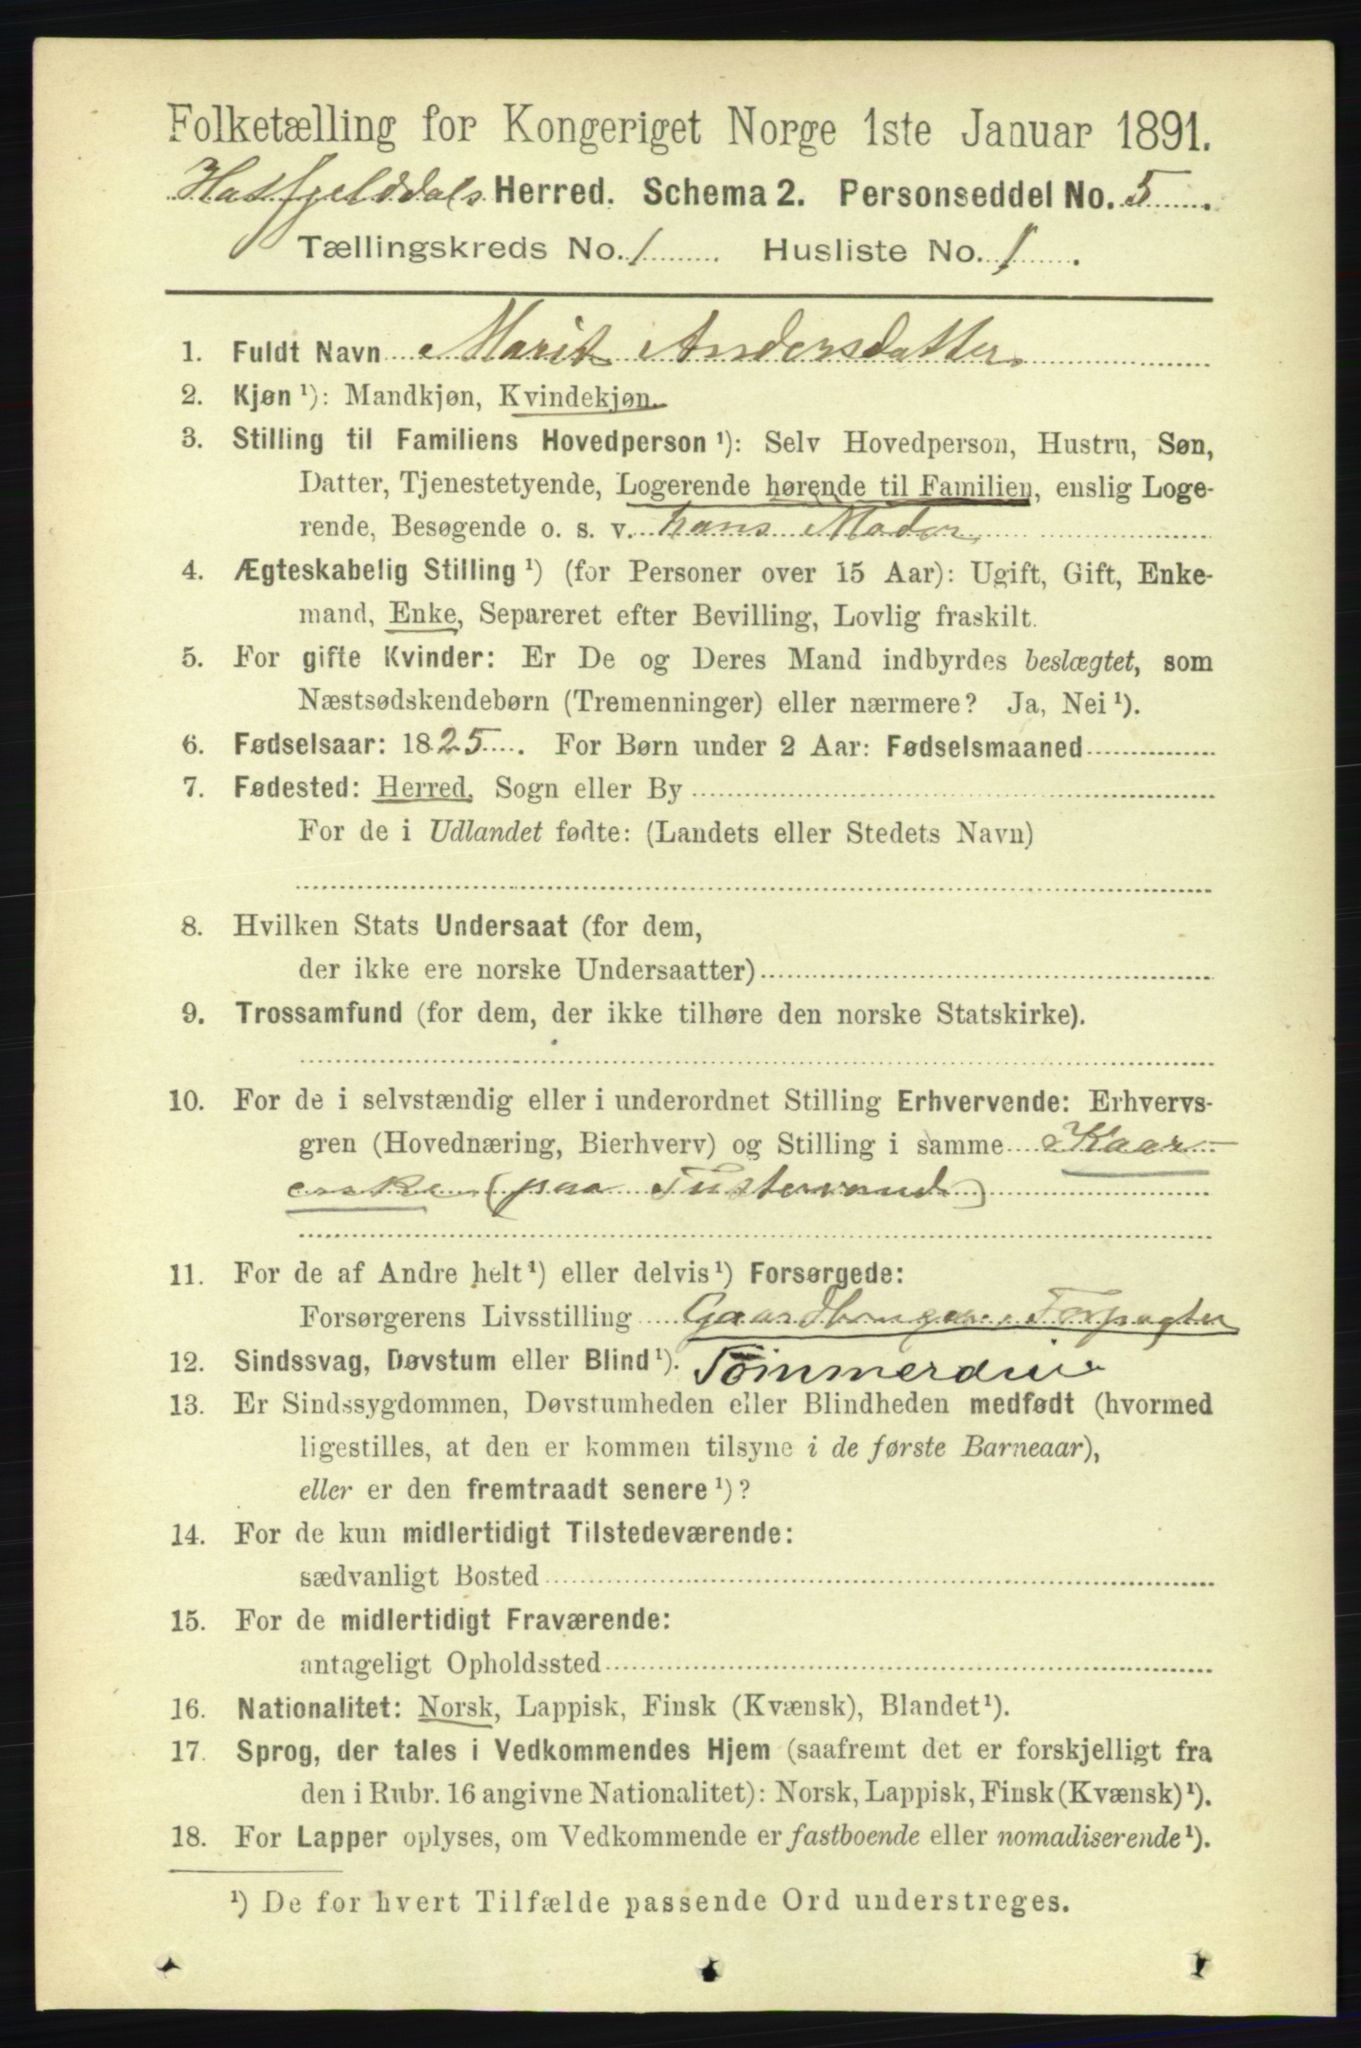 Folketælling for Kongeriget Norge 1ste Januar 1891.
Hatfjelddals Herred. Schema 2. Personseddel No. 5.
Tællingskreds No. 1 Husliste No. 1.
1. Fuldt Navn Marit Andersdatter
2. Kjøn ¹): Mandkjøn, Kvindekjøn.
3. Stilling til Familiens Hovedperson ¹): Selv Hovedperson, Hustru, Søn,
Datter, Tjenestetyende, Logerende hørende til Familien, enslig Loge-
rende, Besøgende o. s. v. hans Moder
4. Ægteskabelig Stilling ¹) (for Personer over 15 Aar): Ugift, Gift, Enke-
mand, Enke, Separeret efter Bevilling, Lovlig fraskilt.
5. For gifte Kvinder: Er De og Deres Mand indbyrdes beslægtet, som
Næstsødskendebørn (Tremenninger) eller nærmere? Ja, Nei ¹).
6. Fødselsaar: 1825. For Børn under 2 Aar: Fødselsmaaned
7. Fødested: Herred, Sogn eller By
For de i Udlandet fødte: (Landets eller Stedets Navn)
8. Hvilken Stats Undersaat (for dem,
der ikke ere norske Undersaatter)
9. Trossamfund (for dem, der ikke tilhøre den norske Statskirke).
10. For de i selvstændig eller i underordnet Stilling Erhvervende: Erhvervs-
gren (Hovednæring, Bierhverv) og Stilling i samme Kaar-
enke (paa Tustervand)
11. For de af Andre helt ¹) eller delvis ¹) Forsørgede:
Forsørgerens Livsstilling Gaardbruger, Forpagter
12. Sindssvag, Døvstum eller Blind ¹).
13. Er Sindssygdommen, Døvstumheden eller Blindheden medfødt (hvormed
ligestilles, at den er kommen tilsyne i de første Barneaar),
eller er den fremtraadt senere ¹)?
14. For de kun midlertidigt Tilstedeværende:
sædvanligt Bosted
15. For de midlertidigt Fraværende:
antageligt Opholdssted
16. Nationalitet: Norsk, Lappisk, Finsk (Kvænsk), Blandet ¹).
17. Sprog, der tales i Vedkommendes Hjem (saafremt det er forskjelligt fra
den i Rubr. 16 angivne Nationalitet): Norsk, Lappisk, Finsk (Kvænsk) ¹).
18. For Lapper oplyses, om Vedkommende er fastboende eller nomadiserende ¹).
¹) De for hvert Tilfælde passende Ord understreges.